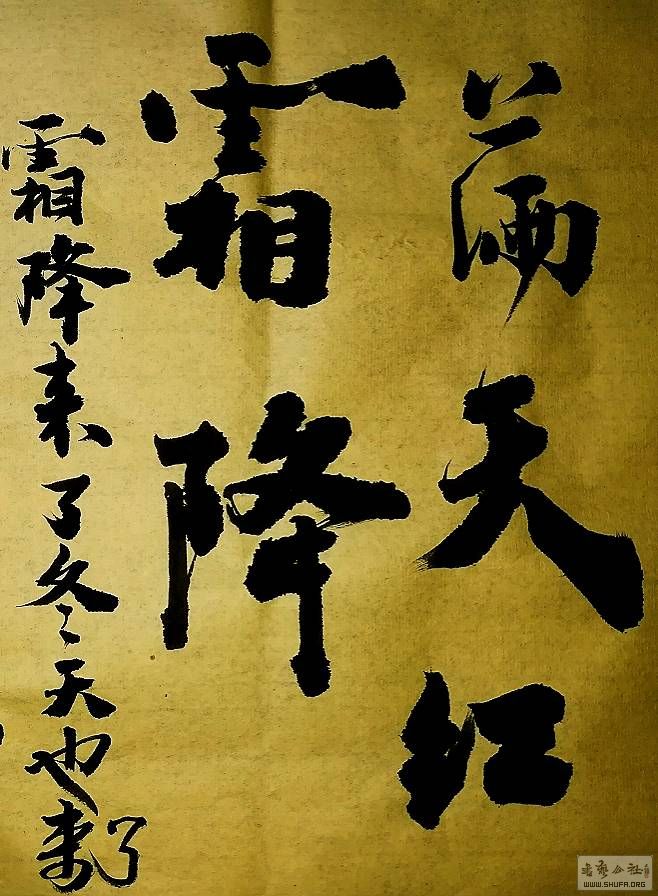 满天红
霜降
霜降来了冬天也来了
书艺公社
WWW.SHUFA.ORG